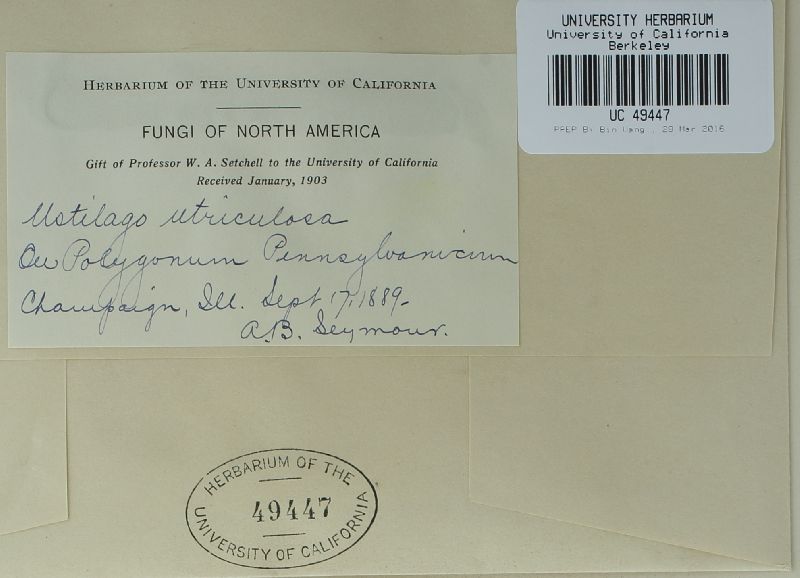 UNIVERSITY HERBARIUM
University of California
Berkeley
UC 49447
PREP By Bin Wang , 29 Mar 2016
HERBARIUM OF THE UNIVERSITY OF CALIFORNIA
FUNGI OF NORTH AMERICA
Gift of Professor W. A. Setchell to the University of California
Received January, 1903
Ustilago utriculosa
On Polygonum Pennsylvanicum
Champaign, Ill. Sept 17, 1889-
A.B. Seymour.
HERBARIUM OF THE
49447
UNIVERSITY OF CALIFORNIA